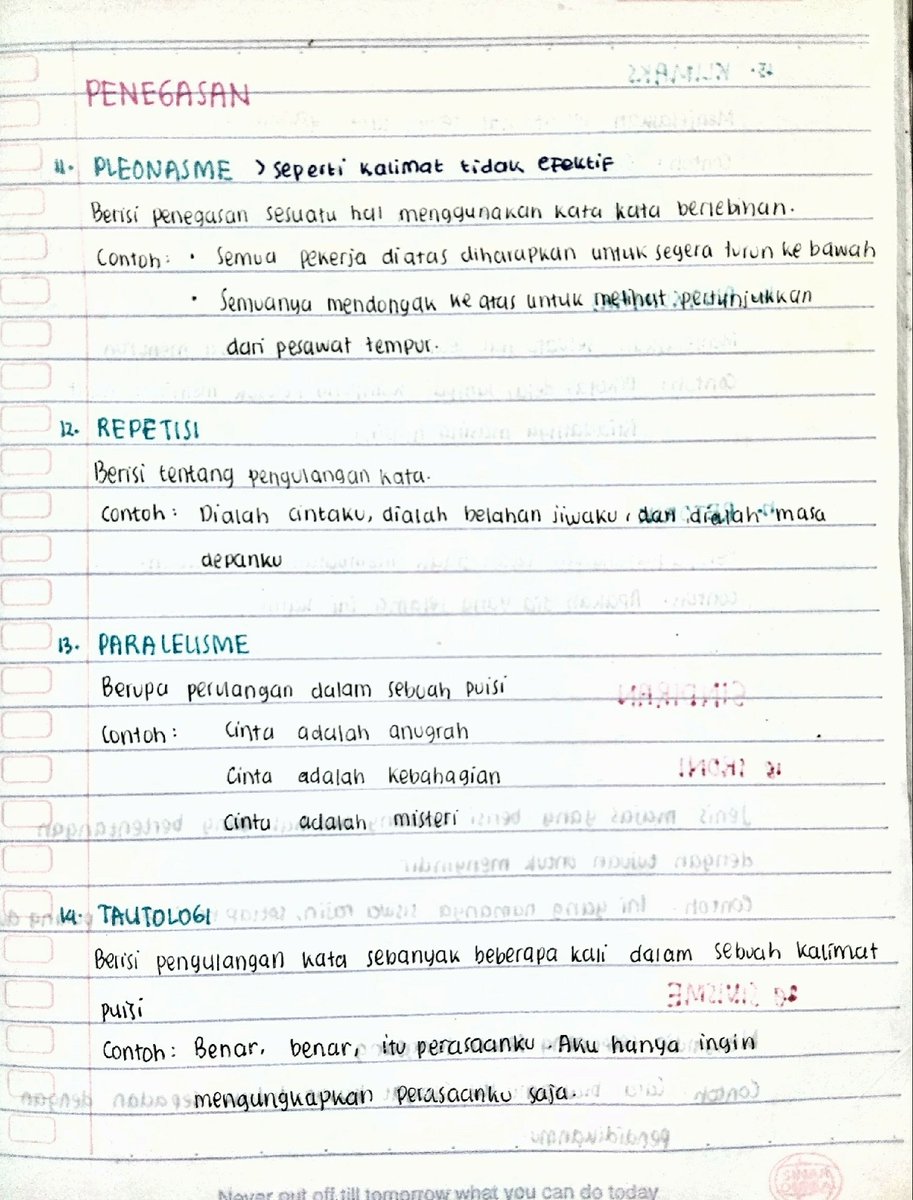 PENEGASAN
11. PLEONASME > seperti kalimat tidak efektif
Berisi penegasan sesuatu hal menggunakan kata kata berlebihan.
Contoh: • Semua pekerja diatas diharapkan untuk segera turun ke bawah
• Semuanya mendongak ke atas untuk melihat pertunjukkan
dari pesawat tempur.
12. REPETISI
Berisi tentang pengulangan kata.
Contoh: Dialah cintaku, dialah belahan jiwaku, dan dialah masa
depanku
13. PARALELISME
Berupa perulangan dalam sebuah puisi
Contoh: Cinta adalah anugrah
Cinta adalah kebahagian
Cinta adalah misteri
14. TAUTOLOGI
Berisi pengulangan kata sebanyak beberapa kali dalam sebuah kalimat
puisi
Contoh: Benar, benar, itu perasaanku. Aku hanya ingin
mengungkapkan perasaanku saja.
Never put off till tomorrow what you can do today